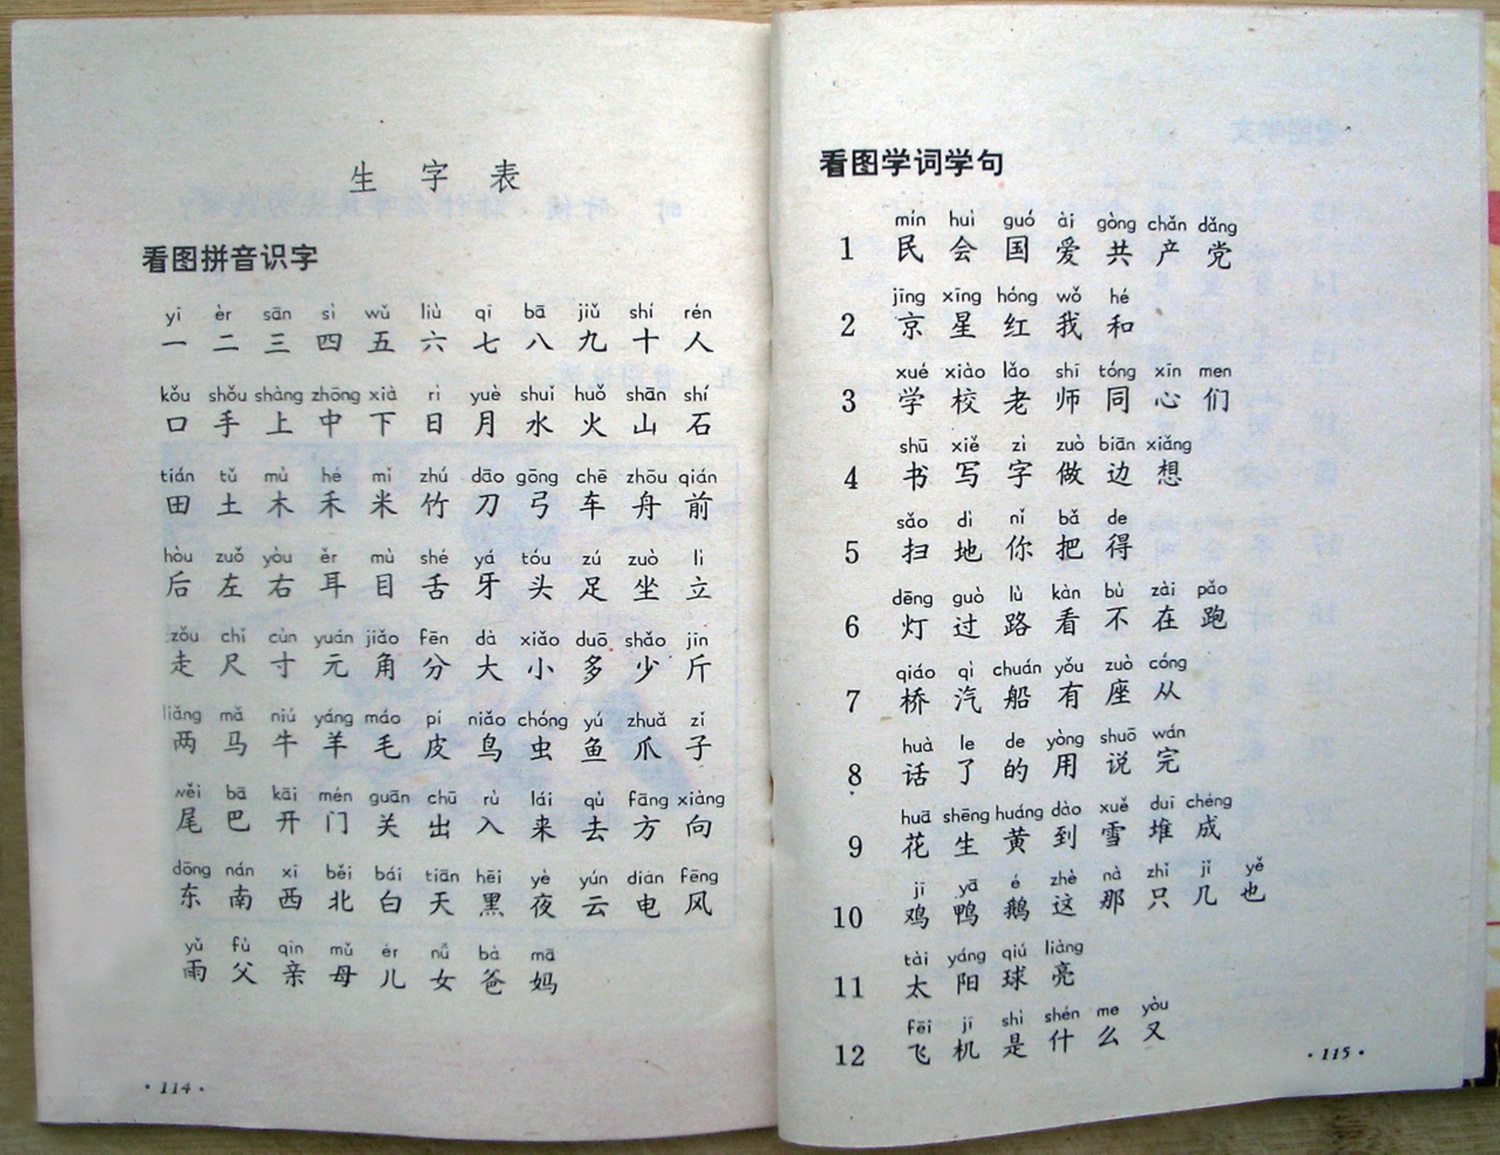 生字表
看图拼音识字
yī èr sān sì wǔ liù qī bā jiǔ shí rén
一 二 三 四 五 六 七 八 九 十 人
kǒu shǒu shàng zhōng xià rì yuè shuǐ huǒ shān shí
口 手 上 中 下 日 月 水 火 山 石
tián tǔ mù hé mǐ zhú dāo gōng chē zhōu qián
田 土 木 禾 米 竹 刀 弓 车 舟 前
hòu zuǒ yòu ěr mù shé yá tóu zú zuò lì
后 左 右 耳 目 舌 牙 头 足 坐 立
zǒu chǐ cùn yuán jiǎo fēn dà xiǎo duō shǎo jīn
走 尺 寸 元 角 分 大 小 多 少 斤
liǎng mǎ niú yáng máo pí niǎo chóng yú zhuǎ zǐ
两 马 牛 羊 毛 皮 鸟 虫 鱼 爪 子
wěi bā kāi mén guān chū rù lái qù fāng xiàng
尾 巴 开 门 关 出 入 来 去 方 向
dōng nán xī běi bái tiān hēi yè yún diàn fēng
东 南 西 北 白 天 黑 夜 云 电 风
yǔ fù qīn mǔ ér nǚ bà mā
雨 父 亲 母 儿 女 爸 妈
·114·
看图学词学句
mín huì guó ài gòng chǎn dǎng
1 民 会 国 爱 共 产 党
jīng xīng hóng wǒ hé
2 京 星 红 我 和
xué xiào lǎo shī tóng xīn men
3 学 校 老 师 同 心 们
shū xiě zì zuò biān xiǎng
4 书 写 字 做 边 想
sǎo dì nǐ bǎ de
5 扫 地 你 把 得
dēng guò lù kàn bù zài pǎo
6 灯 过 路 看 不 在 跑
qiáo qì chuán yǒu zuò cóng
7 桥 汽 船 有 座 从
huà le de yòng shuō wán
8 话 了 的 用 说 完
huā shēng huáng dào xuě duī chéng
9 花 生 黄 到 雪 堆 成
jī yā é zhè nà zhǐ jǐ yě
10 鸡 鸭 鹅 这 那 只 几 也
tài yáng qiú liàng
11 太 阳 球 亮
fēi jī shì shén me yòu
12 飞 机 是 什 么 又
·115·